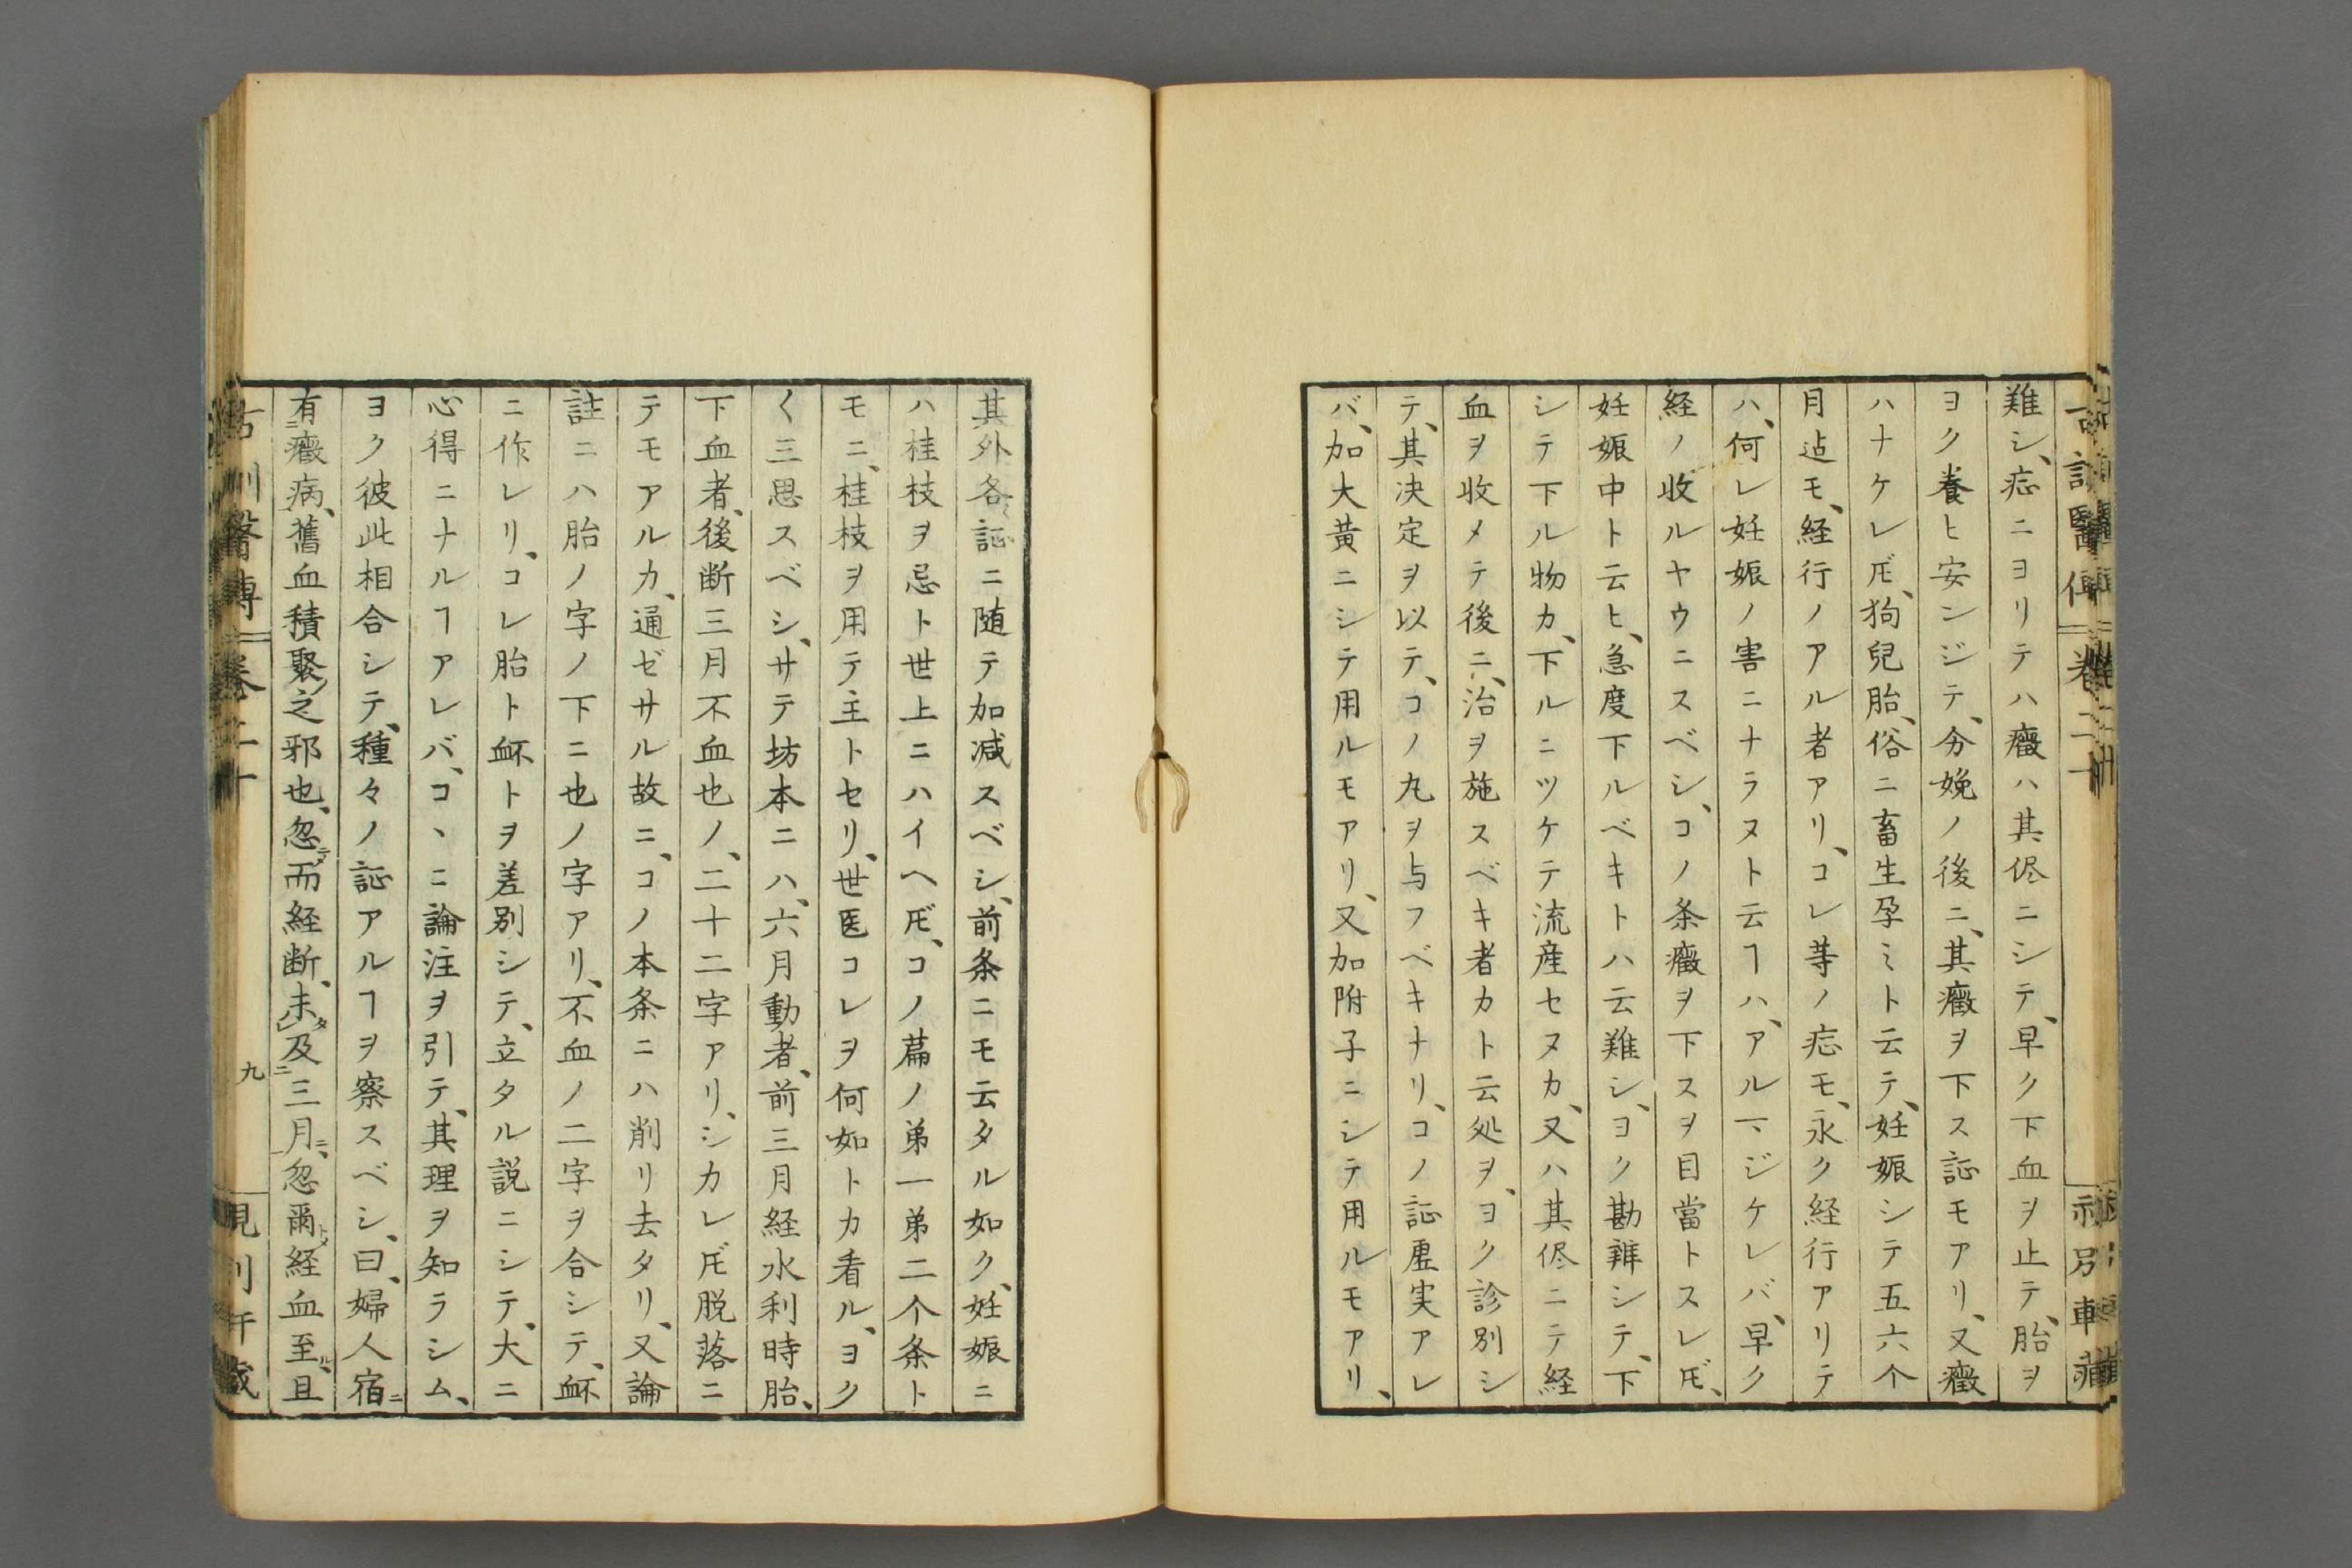 難シ、痣ニヨリテハ癥ハ其侭ニシテ、早ク下血ヲ止テ、胎ヲ
ヨク養ヒ安ンジテ、分娩ノ後ニ、其癥ヲ下ス証モアリ、又癥
ハナケレ𪜈、狗兒胎、俗ニ畜生孕ミト云テ、妊娠シテ五六个
月迠モ、経行ノアル者アリ、コレ等ノ痣モ、永ク経行アリテ
ハ、何レ妊娠ノ害ニナラヌト云ヿハ、アルマジケレバ、早ク
経ノ收ルヤウニスベシ、コノ条癥ヲ下スヲ目當トスレ𪜈、
妊娠中ト云ヒ、急度下ルベキトハ云難シ、ヨク勘辨シテ、下
シテ下ル物カ、下ルニツケテ流産セヌカ、又ハ其侭ニテ経
血ヲ收メテ後ニ、治ヲ施スベキ者カト云処ヲ、ヨク診別シ
テ、其決定ヲ以テ、コノ丸ヲ与フベキナリ、コノ証虚実アレ
バ、加大黄ニシテ用ルモアリ、又加附子ニシテ用ルモアリ、
其外各証ニ随テ加减スベシ、前条ニモ云タル如ク、妊娠ニ
ハ桂枝ヲ忌ト世上ニハイヘ𪜈、コノ篇ノ弟一弟二个条ト
モニ、桂枝ヲ用テ主トセリ、世医コレヲ何如トカ看ル、ヨク
〱三思スベシ、サテ坊本ニハ、六月動者、前三月経水利時胎、
下血者、後断三月不血也ノ、二十二字アリ、シカレ𪜈脱落ニ
テモアルカ、通ゼサル故ニ、コノ本条ニハ削リ去タリ、又論
註ニハ胎ノ字ノ下ニ也ノ字アリ、不血ノ二字ヲ合シテ、衃
ニ作レリ、コレ胎ト衃トヲ差別シテ、立タル説ニシテ、大ニ
心得ニナルヿアレバ、コヽニ論注ヲ引テ、其理ヲ知ラシム、
ヨク彼此相合シテ、種々ノ証アルヿヲ察スベシ、曰、婦人宿ニ
有ニ癥病、舊血積聚之邪也、忽而経断、未タ及ニ三月ニ、忽爾経血至ル、且
卷二十
九